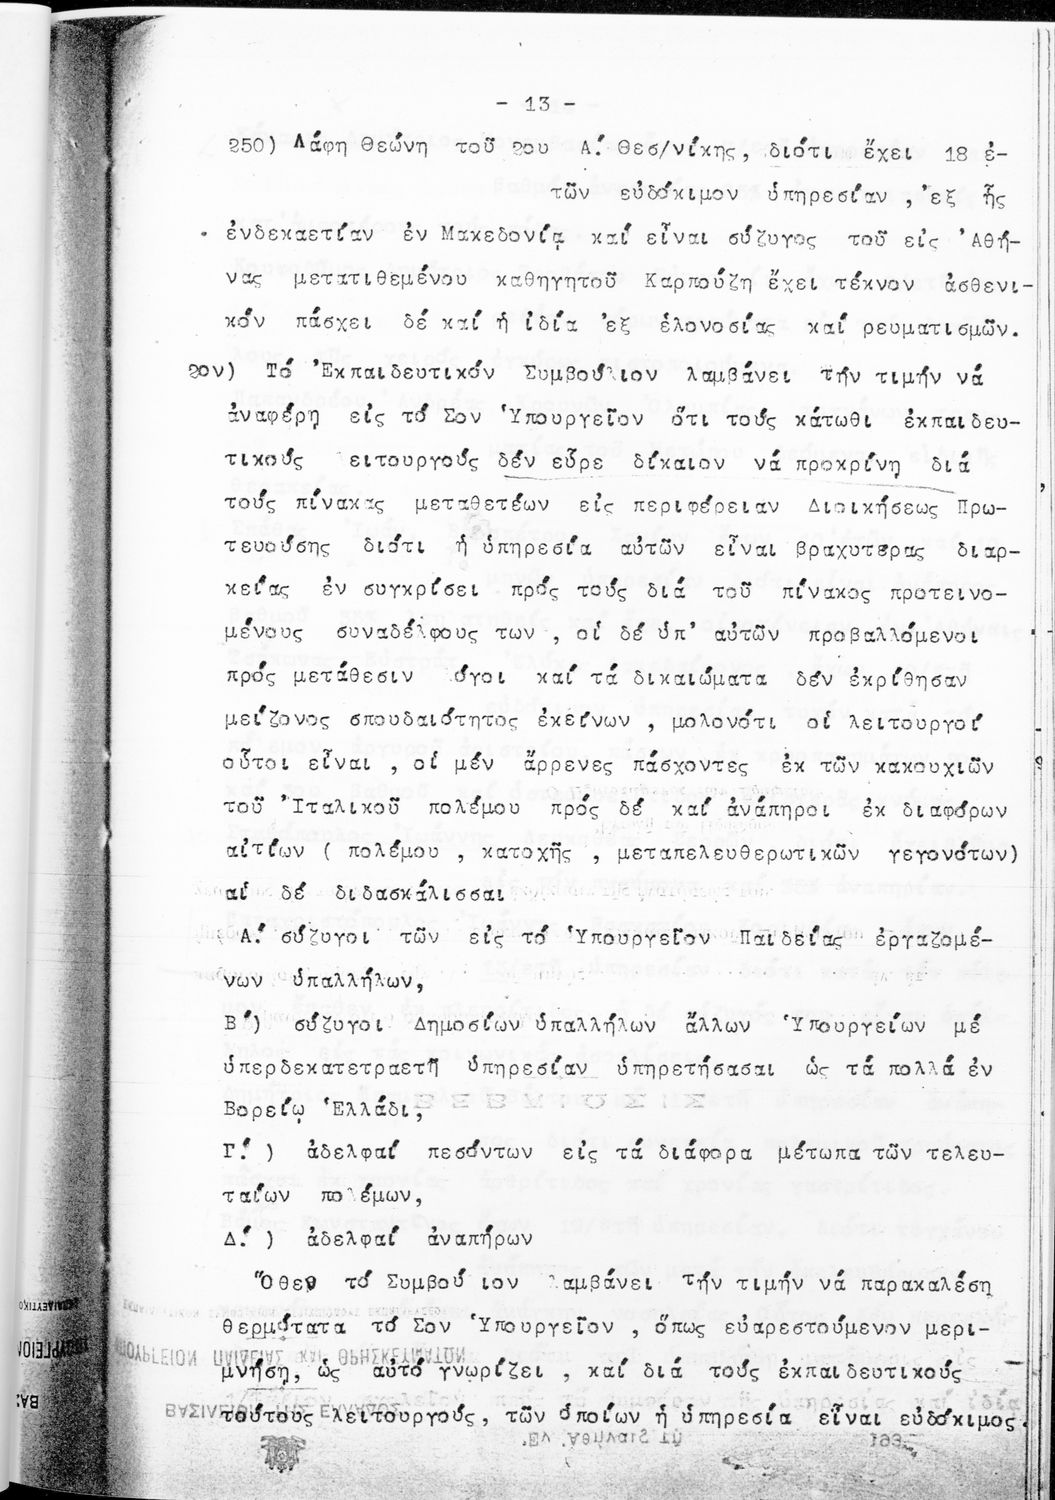 - 13 -
250) Λάφη Θεώνη τοῦ 2ου Α΄. Θεσ/νίκης, διότι ἔχει 18 ἐ-
τῶν εὐδόκιμον ὑπηρεσίαν , ἐξ ἧς
ἑνδεκαετίαν ἐν Μακεδονίᾳ καί εἶναι σύζυγος τοῦ εἰς Ἀθή-
νας μετατιθεμένου καθηγητοῦ Καρπούζη ἔχει τέκνον ἀσθενι-
κόν πάσχει δέ καί ἡ ἰδία ἐξ ἑλονοσίας καί ρευματισμῶν.
2ον) Τό Ἐκπαιδευτικόν Συμβούλιον λαμβάνει τήν τιμήν νά
ἀναφέρῃ εἰς τό Σον Ὑπουργεῖον ὅτι τούς κάτωθι ἐκπαιδευ-
τικούς ειτουργούς δέν εὗρε δίκαιον νά προκρίνῃ διά
τούς πίνακας μεταθετέων εἰς περιφέρειαν Διοικήσεως Πρω-
τευούσης διότι ἡ ὑπηρεσία αὐτῶν εἶναι βραχυτερας διαρ-
κείας ἐν συγκρίσει πρός τούς διά τοῦ πίνακος προτεινο-
μένους συναδέλφους των , οἱ δέ ὑπ' αὐτῶν προβαλλόμενοι
πρός μετάθεσιν λόγοι καί τά δικαιώματα δέν ἐκρίθησαν
μείζονος σπουδαιότητος ἐκείνων , μολονότι οἱ λειτουργοί
οὗτοι εἶναι , οἱ μέν ἄρρενες πάσχοντες ἐκ τῶν κακουχιῶν
τοῦ Ἰταλικοῦ πολέμου πρός δέ καί ἀνάπηροι ἐκ διαφόρων
αἰτίων ( πολέμου , κατοχῆς , μεταπελευθερωτικῶν γεγονότων)
αἱ δέ διδασκάλισσαι
Α΄. σύζυγοι τῶν εἰς τό Ὑπουργεῖον Παιδείας ἐργαζομέ-
νων ὑπαλλήλων,
Β΄) σύζυγοι Δημοσίων ὑπαλλήλων ἄλλων Ὑπουργείων μέ
ὑπερδεκατετραετῆ ὑπηρεσίαν ὑπηρετήσασαι ὡς τά πολλά ἐν
Βορείῳ Ἑλλάδι,
Γ΄. ) ἀδελφαί πεσόντων εἰς τά διάφορα μέτωπα τῶν τελευ-
ταίων πολέμων,
Δ΄. ) ἀδελφαί ἀναπήρων
Ὅθεν τό Συμβού ιον λαμβάνει τήν τιμήν νά παρακαλέσῃ
θερμότατα τό Σον Ὑπουργεῖον , ὅπως εὐαρεστούμενον μερι-
μνήσῃ, ὡς αὐτό γνωρίζει , καί διά τούς ἐκπαιδευτικούς
τούτους λειτουργούς, τῶν ὁποίων ἡ ὑπηρεσία εἶναι εὐδόκιμος.